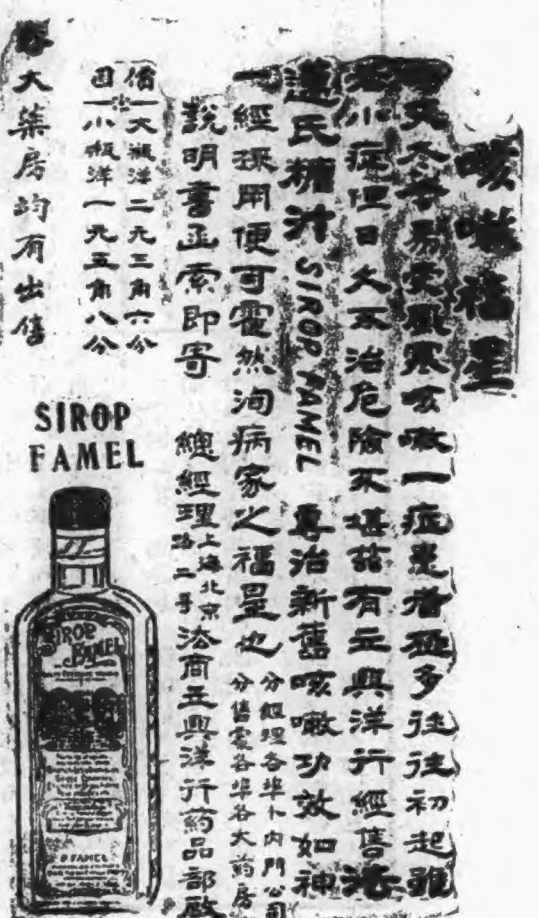 咳嗽福星
天冬令易受風寒咳嗽一症患者極多往往初起雖
小症但日久不治危險不堪茲有立興洋行經售法
氏糖汁 SIROP FAMEL 專治新舊咳嗽功效如神
一經採用便可霍然洵病家之福星也
分經理各埠卜內門公司
分售處各埠各大药房
說明書函索即寄 總經理上海北京路二号法商立興洋行葯品部啟
價目
大瓶洋二元三角六分
小瓶洋一元五角八分
各大藥房均有出售
SIROP
FAMEL
SIROP
FAMEL
P. FAMEL